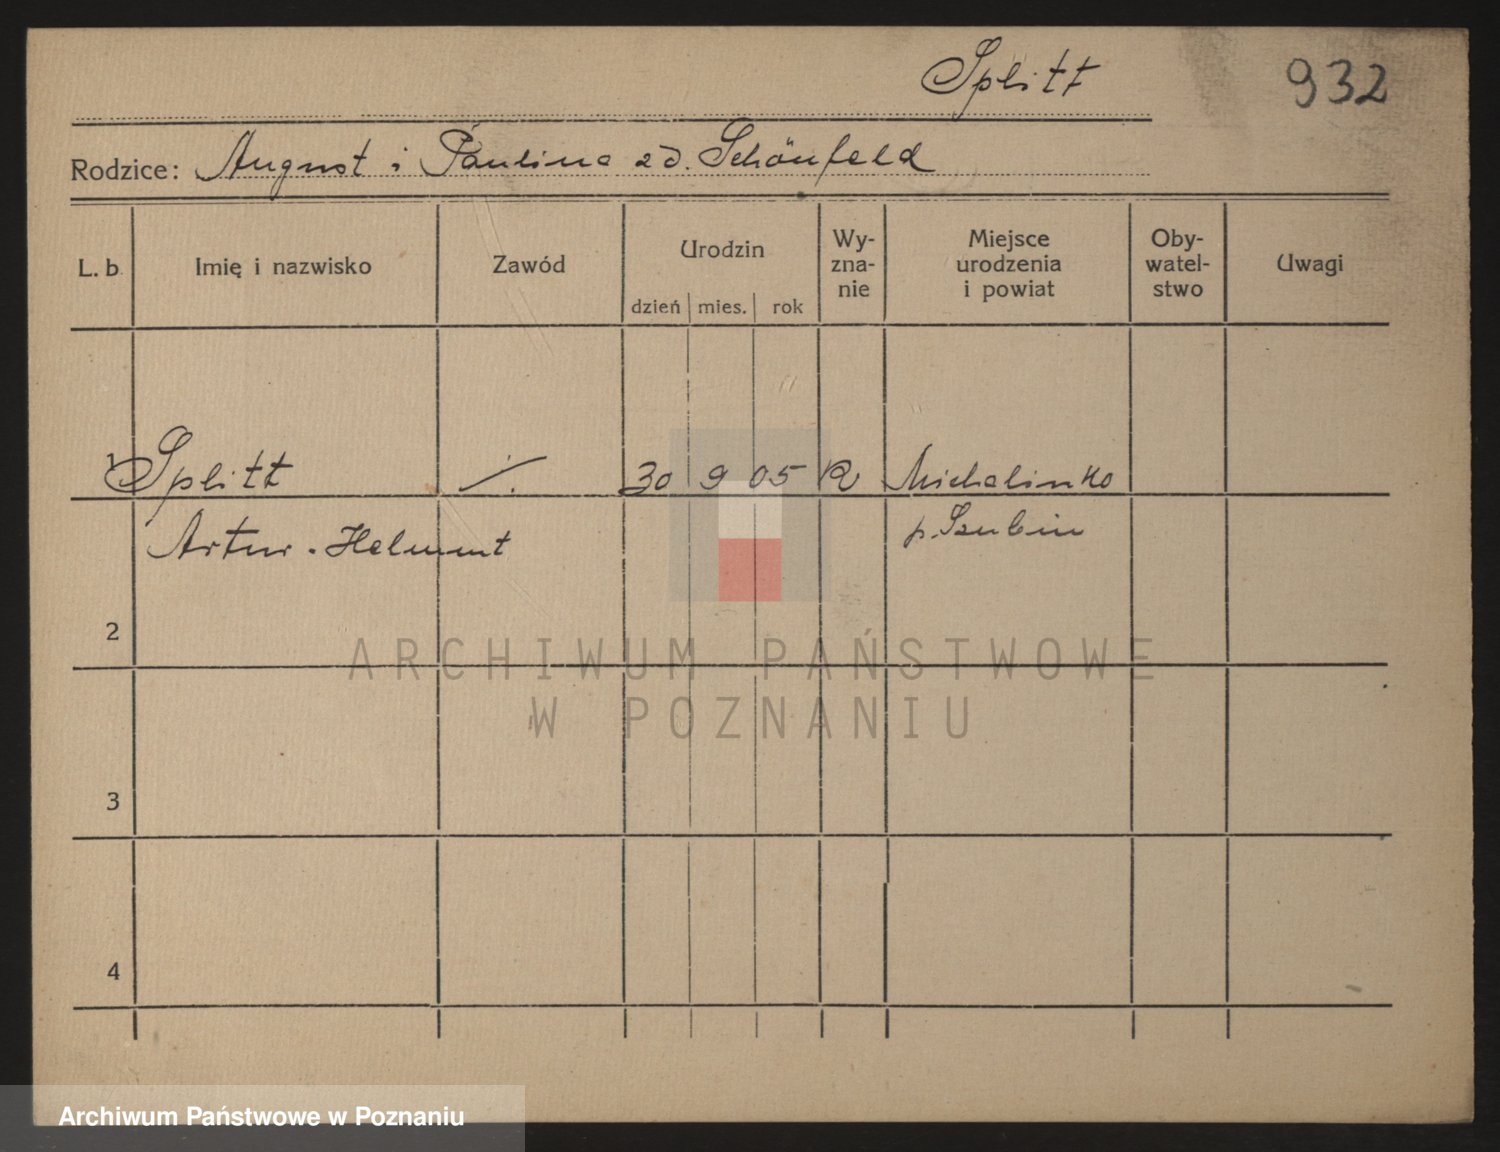 Splitt
932
Rodzice: August i Paulina zd. Schönfeld
L. b. Imię i nazwisko Zawód Urodzin Wy-zna-nie Miejsce urodzenia i powiat Oby-watel-stwo Uwagi
dzień mies. rok
1 Splitt ./. 30 9 05 R Michalinko
Artur - Helmut p. Szubin
2
3
4
ARCHIWUM PAŃSTWOWE
W POZNANIU
Archiwum Państwowe w Poznaniu